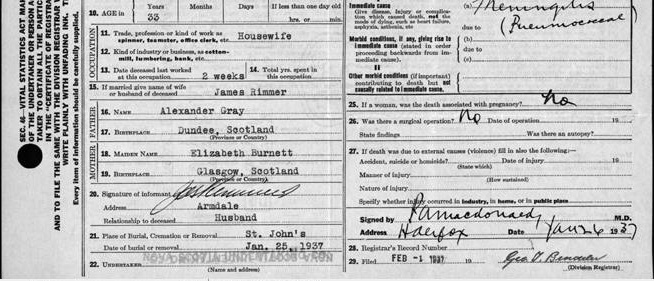 SEC. 46—VITAL STATISTICS ACT MAK
OF THE UNDERTAKER OR PERSON A
TAKER TO OBTAIN ALL THE PARTIC
IN THE "CERTIFICATE OF REGISTRAT
AND TO FILE THE SAME WITH THE DIVISION REGISTRAR
WRITE PLAINLY WITH UNFADING INK. T
Every item of information should be carefully supplied.
10. AGE in
Years
33
Months
Days
If less than one day
hrs. or min.
OCCUPATION
11. Trade, profession or kind of work as
spinner, teamster, office clerk, etc.
Housewife
12. Kind of industry or business, as cotton-
mill, lumbering, bank, etc.
13. Date deceased last worked
at this occupation
2 weeks
14. Total yrs. spent
in this occupation.
15. If married give name of wife
or husband of deceased
James Rimmer
FATHER
16. Name
Alexander Gray
17. Birthplace
Dundee, Scotland
(Province or Country)
MOTHER
18. Maiden Name
Elizabeth Burnett
19. Birthplace
Glasgow, Scotland
(Province or Country)
20. Signature of informant
Address
Armdale
Relationship to deceased
Husband
21. Place of Burial, Cremation or Removal
St. John's
Date of burial or removal
Jan. 25, 1937
22. Undertaker
(Name and address)
Immediate cause
Give disease, injury or complica-
tion which caused death, not the
mode of dying, such as heart failure,
asphyxia, asthenia, etc
(a) Meningitis
due to (Pneumococcal
Morbid conditions, if any, giving rise to
immediate cause (stated in order
proceeding backwards from im-
mediate cause).
(b)
due to
(c)
II
Other morbid conditions (if important)
contributing to death but not
causally related to immediate cause.
25. If a woman, was the death associated with pregnancy? No
26. Was there a surgical operation? No Date of operation 19
State findings Was there an autopsy?
27. If death was due to external causes (violence) fill in also the following:—
Accident, suicide or homicide? Date of injury 19
(State which)
Manner of injury
(How sustained)
Nature of injury
Specify whether injury occurred in industry, in home, or in public place
Signed by
M.D.
Address Halifax Date Jan 26 1937
28. Registrar's Record Number
29. Filed FEB -1 1937 19
(Division Registrar)